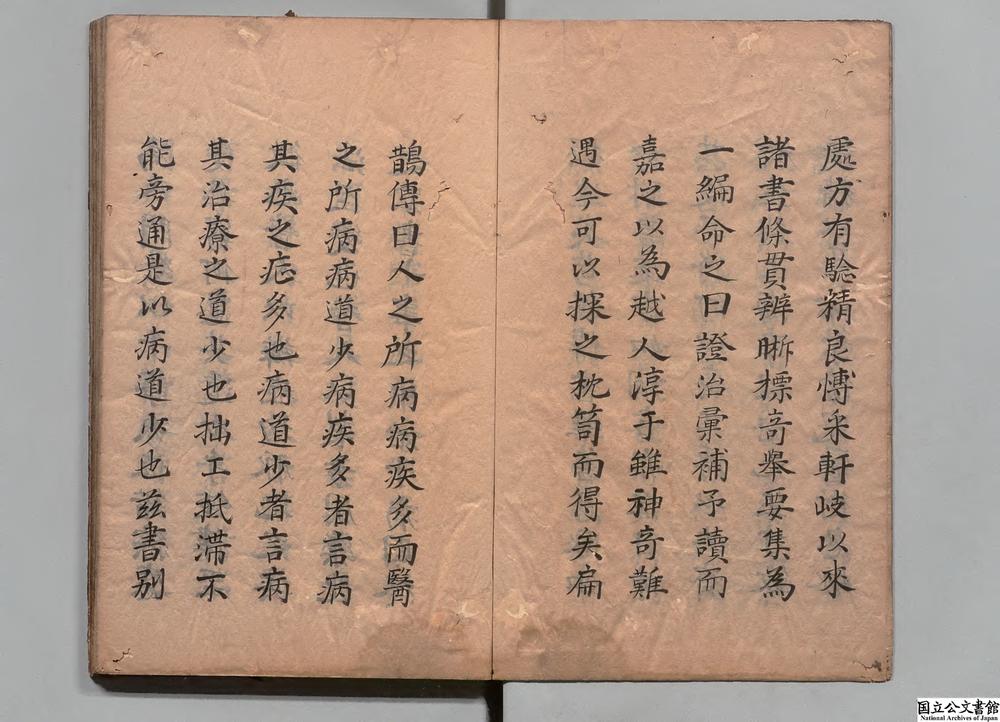 處方有驗精良愽采軒岐以來
諸書條貫辨晣摽竒舉要集為
一編命之曰證治彙補予讀而
嘉之以為越人淳于雖神竒難
遇今可以探之枕笥而得矣扁
鵲傳曰人之所病病疾多而醫
之所病病道少病疾多者言病
其疾之疕多也病道少者言病
其治療之道少也拙工抵滯不
能旁通是以病道少也茲書別
国立公文書館
National Archives of Japan